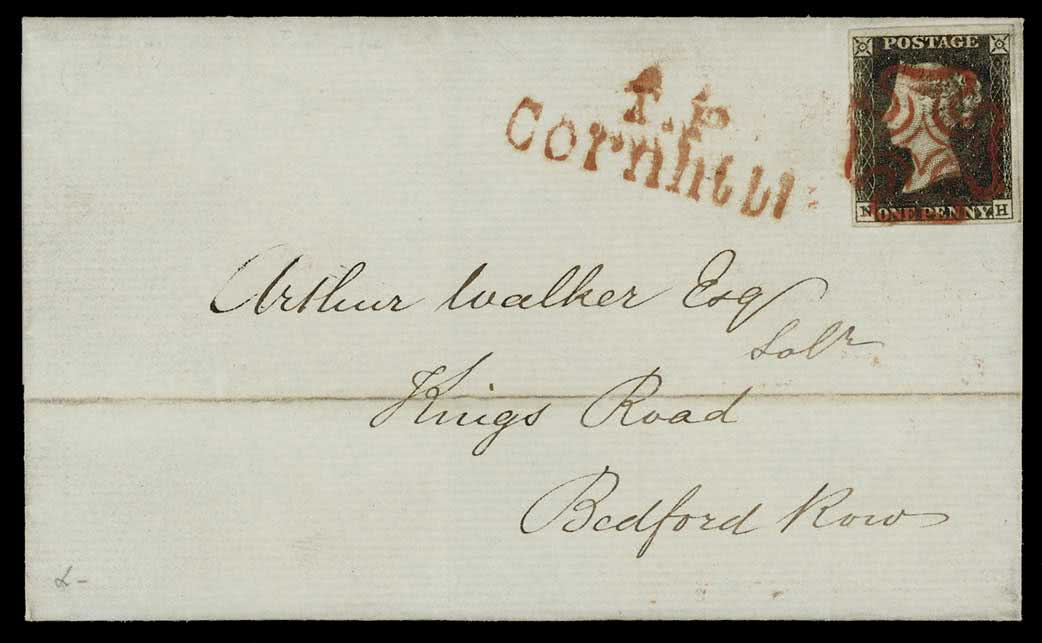 T.P
Cornhill
POSTAGE
N ONE PENNY. H
Arthur Walker Esq
Solr
Kings Road
Bedford Row